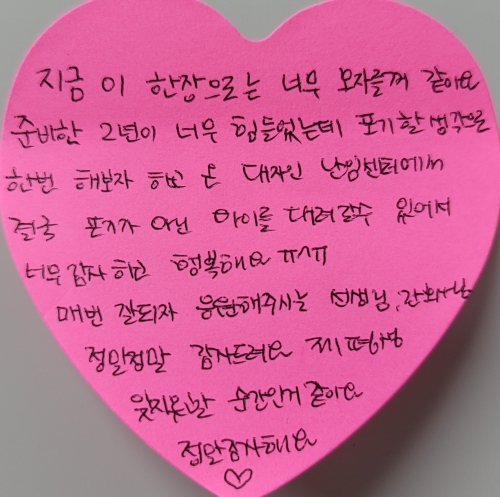 지금 이 한장으로는 너무 모자를꺼 같아요
준비한 2년이 너무 힘들었는데 포기할 생각으로
한번 해보자 하고 온 대자인 난임센터에서
결국 포기가 아닌 아이를 데려갈수 있어서
너무 감사하고 행복해요 ㅠㅅㅠ
매번 잘되자 응원해주시는 선생님, 간호사님
정말정말 감사드려요 제 평생
잊지못할 순간인거 같아요
정말감사해요
♡